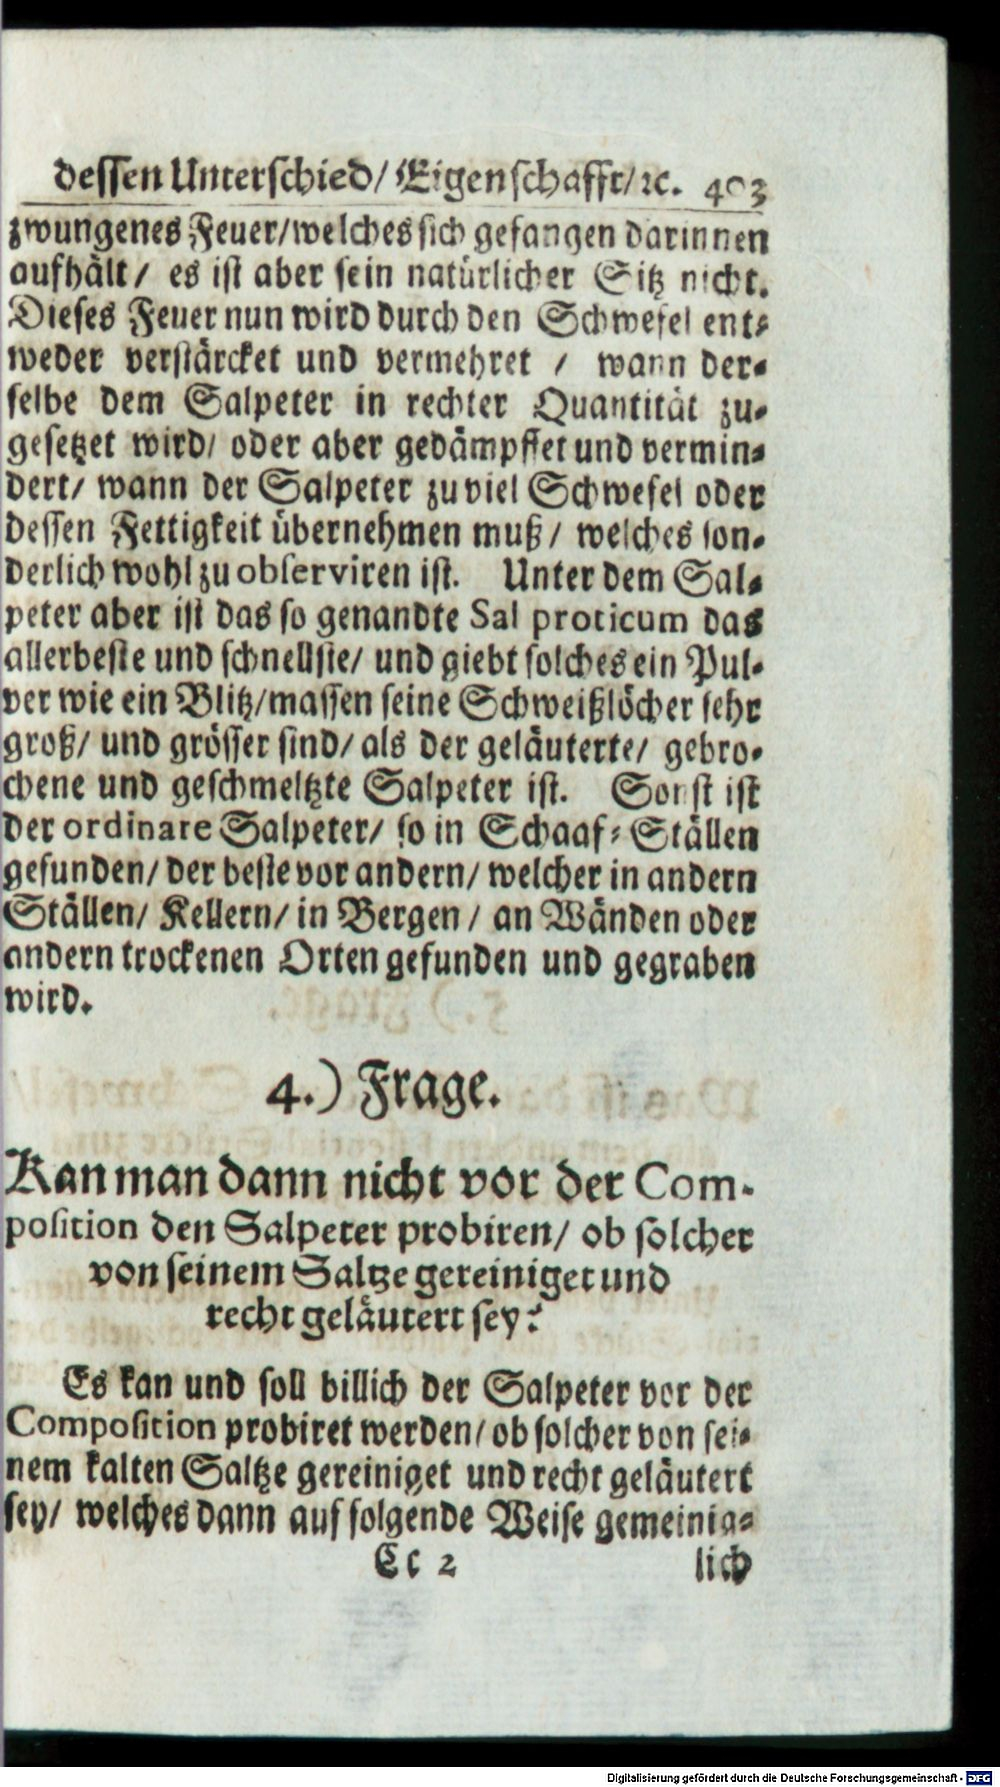 dessen Unterschied/ Eigenschafft/ ꝛc. 403
zwungenes Feuer/welches sich gefangen darinnen
aufhält/ es ist aber sein natürlicher Sitz nicht.
Dieses Feuer nun wird durch den Schwefel ent-
weder verstärcket und vermehret / wann der-
selbe dem Salpeter in rechter Quantität zu-
gesetzet wird/ oder aber gedämpffet und vermin-
dert/ wann der Salpeter zu viel Schwefel oder
dessen Fettigkeit übernehmen muß/ welches son-
derlich wohl zu observiren ist. Unter dem Sal-
peter aber ist das so genandte Sal proticum das
allerbeste und schnellste/ und giebt solches ein Pul-
ver wie ein Blitz/massen seine Schweißlöcher sehr
groß/ und grösser sind/ als der geläuterte/ gebro-
chene und geschmeltzte Salpeter ist. Sonst ist
der ordinare Salpeter/ so in Schaaf-Ställen
gefunden/ der beste vor andern/ welcher in andern
Ställen/ Kellern/ in Bergen / an Wänden oder
andern trockenen Orten gefunden und gegraben
wird.
4.) Frage.
Kan man dann nicht vor der Com-
position den Salpeter probiren/ ob solcher
von seinem Saltze gereiniget und
recht geläutert sey?
Es kan und soll billich der Salpeter vor der
Composition probiret werden/ ob solcher von sei-
nem kalten Saltze gereiniget und recht geläutert
sey/ welches dann auf folgende Weise gemeinig-
Cc 2 lich
Digitalisierung gefördert durch die Deutsche Forschungsgemeinschaft - DFG